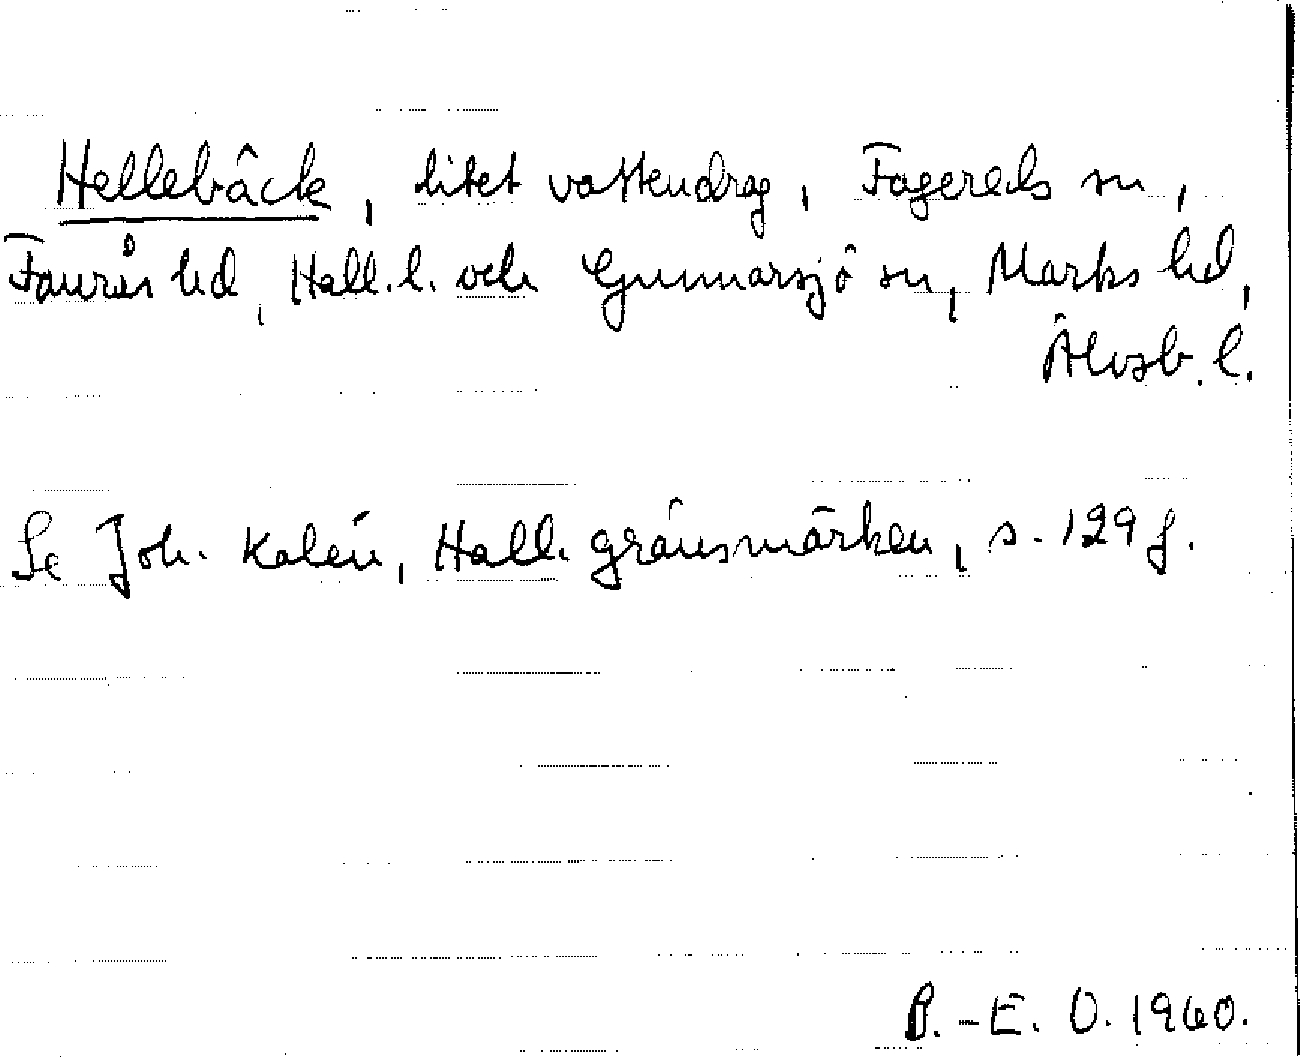 Hellebäck, litet vattendrag, Fagereds sn,
Faurås hd, Hall. l. och Gunnarsjö sn, Marks hd,
Älvsb. l.
Se Joh. Kalén, Hall. gränsmärken, s. 129 f.
B.-E. O. 1960.